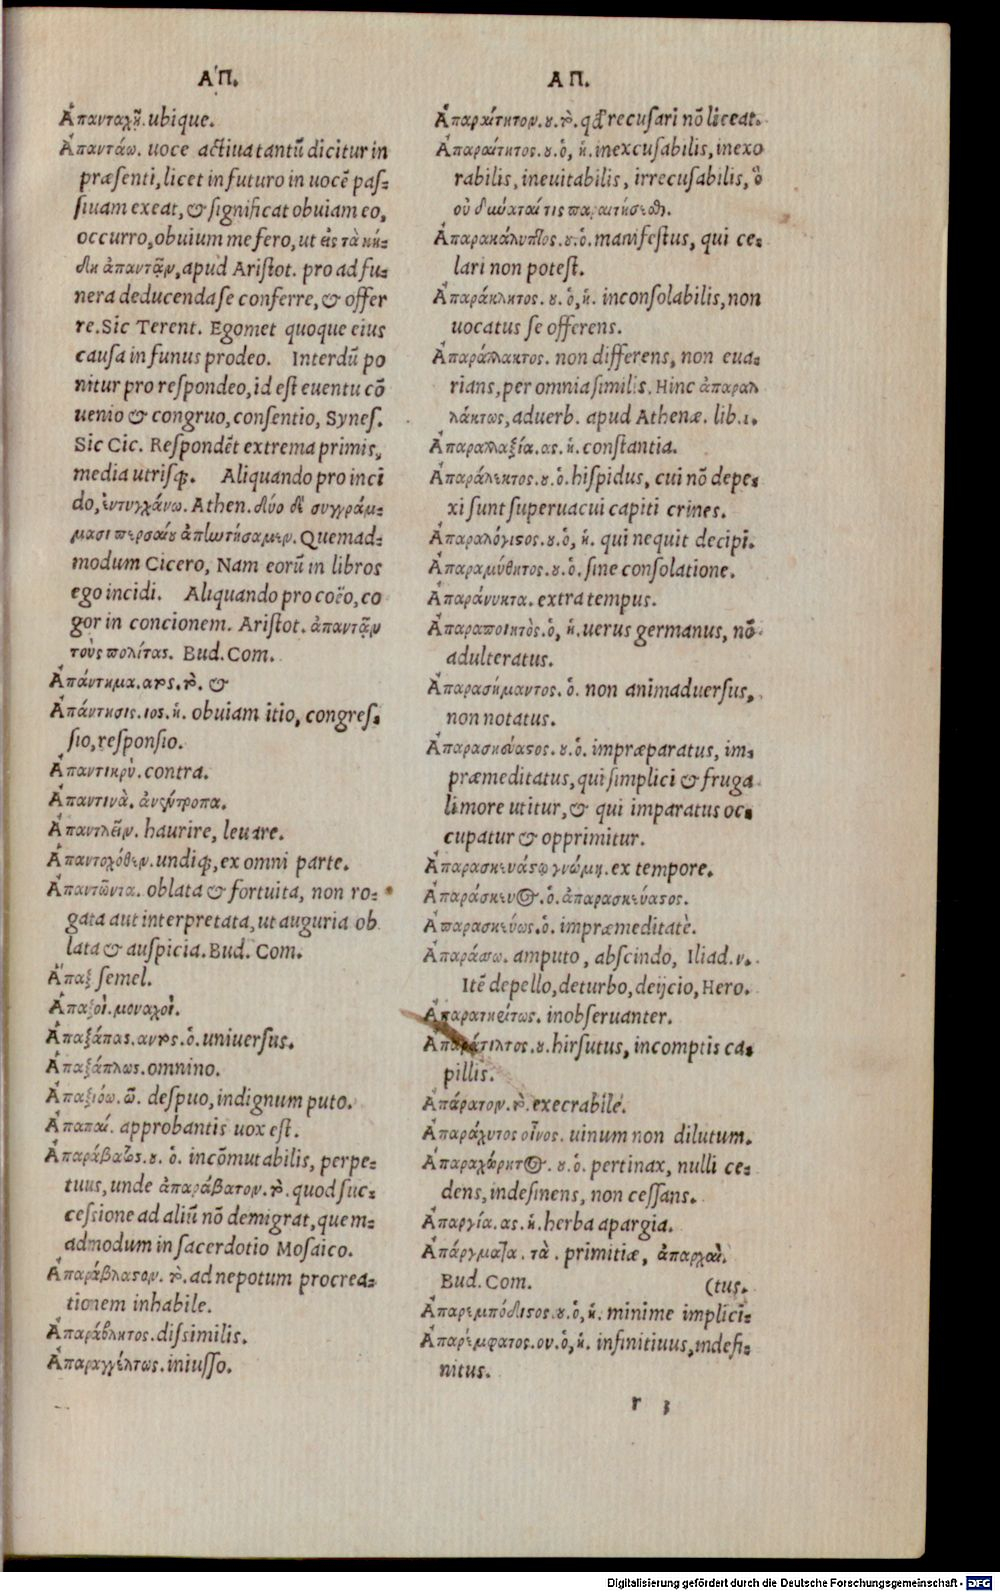 ΑΠ.
Ἁπανταχῆ. ubique.
Ἀπαντάω. uoce actiua tantũ dicitur in
præsenti, licet in futuro in uocẽ pas-
siuam exeat, & significat obuiam eo,
occurro, obuium me fero, ut εἰς τὰ κή-
δη ἀπαντᾷν, apud Aristot. pro ad fu-
nera deducenda se conferre, & offer
re. Sic Terent. Egomet quoque eius
causa in funus prodeo. Interdũ po
nitur pro respondeo, id est euentu cõ
uenio & congruo, consentio, Synes.
Sic Cic. Respondẽt extrema primis,
media utrisq;. Aliquando pro inci
do, ἐντυγχάνω. Athen. δύο δὲ συγγράμ-
μασι περσαίου ἀπηντήσαμεν. Quemad-
modum Cicero, Nam eorũ in libros
ego incidi. Aliquando pro coëo, co
gor in concionem. Aristot. ἀπαντᾷν
τοὺς πολίτας. Bud. Com.
Ἀπάντημα. ατος. τὸ. &
Ἀπάντησις. ιος. ἡ. obuiam itio, congres-
sio, responsio.
Ἀπαντικρὺ. contra.
Ἀπαντινὰ. ἀνέντροπα.
Ἀπαντλεῖν. haurire, leuare.
Ἁπαντοχόθεν. undiq;, ex omni parte.
Ἀπαντῶντα. oblata & fortuita, non ro-
gata aut interpretata, ut auguria ob
lata & auspicia. Bud. Com.
Ἅπαξ semel.
Ἁπαξοὶ. μοναχοὶ.
Ἁπαξάπας. αντος. ὁ. uniuersus.
Ἁπαξάπλως. omnino.
Ἀπαξιόω. ῶ. despuo, indignum puto.
Ἀπαπαί. approbantis uox est.
Ἀπαράβατος. ου. ὁ. incõmutabilis, perpe-
tuus, unde ἀπαράβατον. τὸ. quod suc-
cessione ad aliũ nõ demigrat, quem-
admodum in sacerdotio Mosaico.
Ἀπαράβλαστον. τὸ. ad nepotum procrea-
tionem inhabile.
Ἀπαράβλητος. dissimilis.
Ἀπαραγγέλτως. iniusso.
ΑΠ.
Ἀπαραίτητον. ου. τὸ. qd recusari nõ liceat.
Ἀπαραίτητος. ου. ὁ, ἡ. inexcusabilis, inexo
rabilis, ineuitabilis, irrecusabilis, ὃ
οὐ δύναταί τις παραιτήσεσθ.
Ἀπαρακάλυπτος. ου. ὁ. manifestus, qui ce-
lari non potest.
Ἀπαράκλητος. ου. ὁ, ἡ. inconsolabilis, non
uocatus se offerens.
Ἀπαράλλακτος. non differens, non eua-
rians, per omnia similis. Hinc ἀπαραλ
λάκτως, aduerb. apud Athenæ. lib. 1.
Ἀπαραλλαξία. ας. ἡ. constantia.
Ἀπαράλεκτος. ου. ὁ. hispidus, cui nõ depe-
xi sunt superuacui capiti crines.
Ἀπαραλόγιστος. ου. ὁ, ἡ. qui nequit decipi.
Ἀπαραμύθητος. ου. ὁ. sine consolatione.
Ἀπαράνυκτα. extra tempus.
Ἀπαραποιητὸς. ὁ, ἡ. uerus germanus, nõ
adulteratus.
Ἀπαρασήμαντος. ὁ. non animaduersus,
non notatus.
Ἀπαρασκεύαστος. ου. ὁ. impræparatus, im-
præmeditatus, qui simplici & fruga
li more utitur, & qui imparatus oc-
cupatur & opprimitur.
Ἀπαρασκευάστῳ γνώμῃ. ex tempore.
Ἀπαράσκευος. ὁ. ἀπαρασκεύαστος.
Ἀπαρασκεύως. ὁ. impræmeditatè.
Ἀπαράσσω. amputo, abscindo, Iliad. ν.
Itẽ depello, deturbo, deijcio, Hero.
Ἀπαρατηρήτως. inobseruanter.
Ἀπαράτιλτος. ου. hirsutus, incomptis ca-
pillis.
Ἀπάρατον. τὸ. execrabile.
Ἀπαράχυτος οἶνος. uinum non dilutum.
Ἀπαραχώρητος. ου. ὁ. pertinax, nulli ce-
dens, indesinens, non cessans.
Ἀπαργία. ας. ἡ. herba apargia.
Ἀπάργματα. τὰ. primitiæ, ἀπαρχαὶ.
Bud. Com. (tus.
Ἀπαρεμπόδιστος. ου. ὁ, ἡ. minime implici-
Ἀπαρέμφατος. ου. ὁ, ἡ. infinitiuus, indefi-
nitus.
r 3
Digitalisierung gefördert durch die Deutsche Forschungsgemeinschaft - DFG